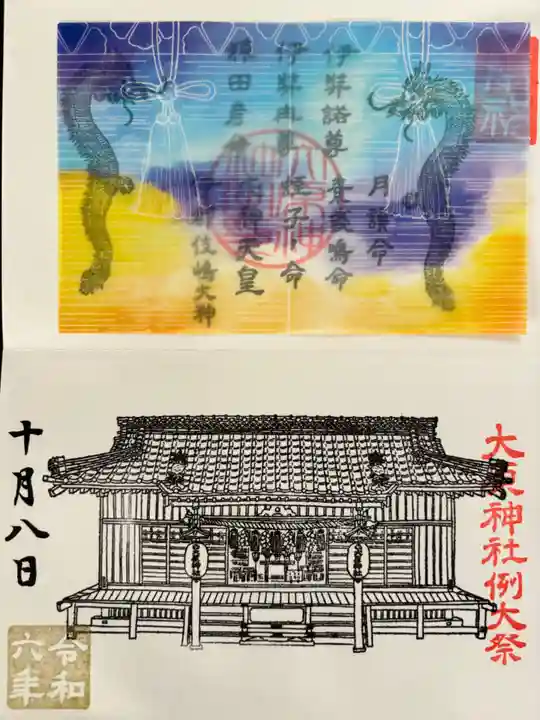 月讀命
伊弉諾尊 素盞嗚命
伊弉冉尊 蛭子命
猿田彦命 應神天皇
嶋大神
大原神社例大祭
十月八日
令和
六年